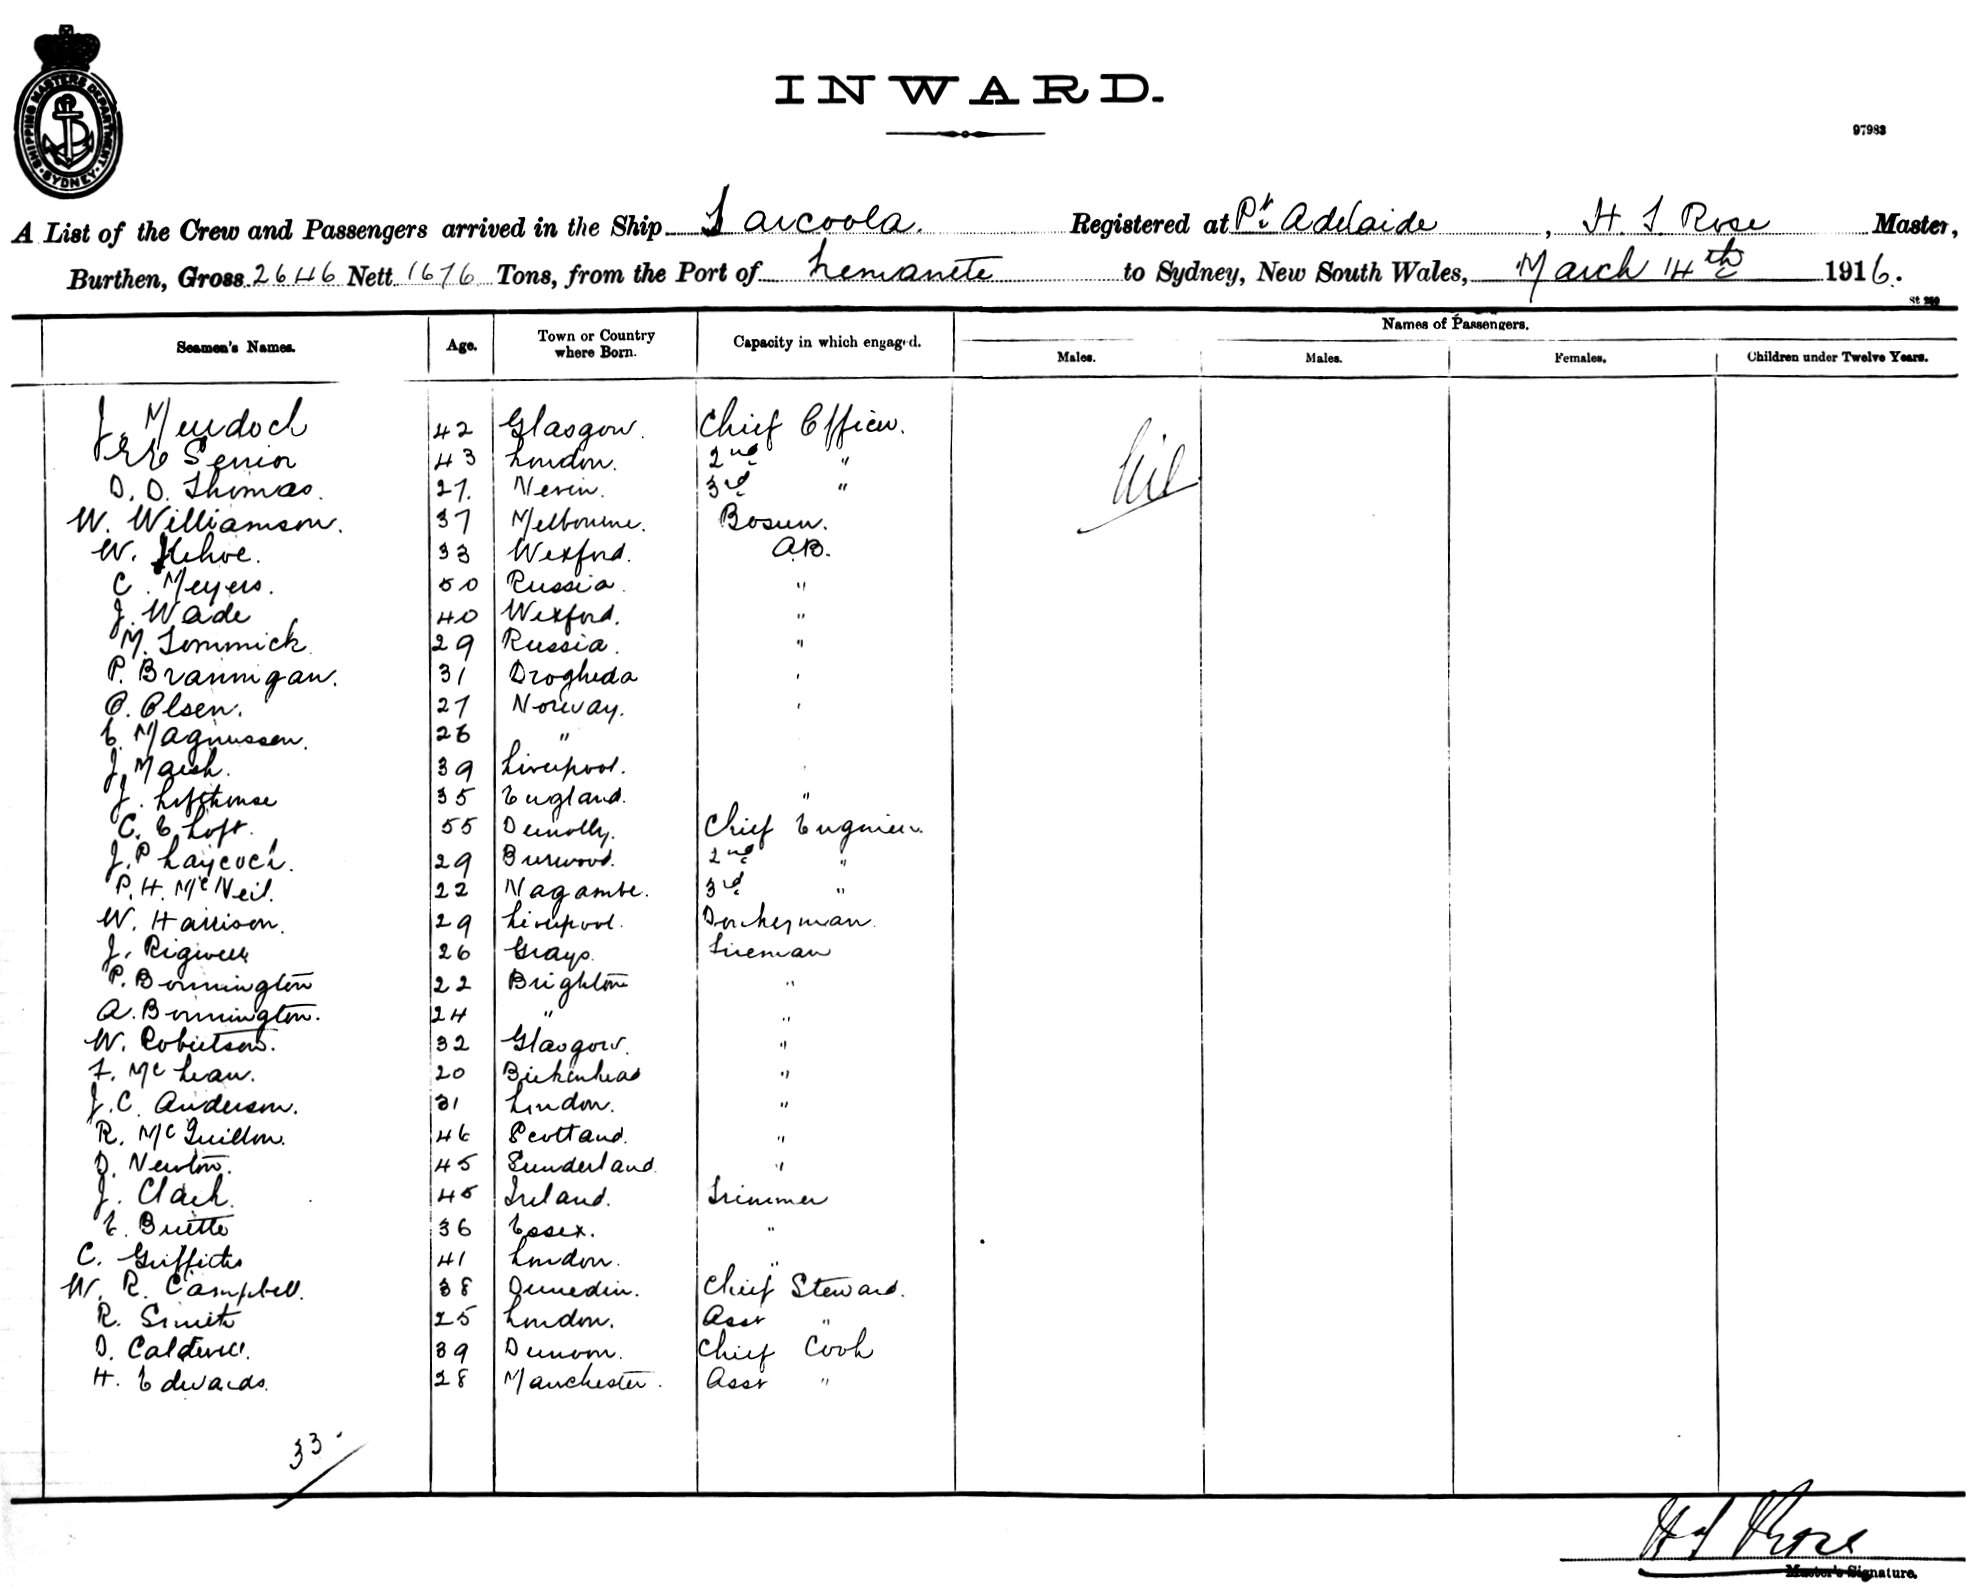 SHIPPING MASTERS DEPARTMENT SYDNEY
INWARD.
97983
A List of the Crew and Passengers arrived in the Ship Tarcoola. Registered at Pt. Adelaide, H. T. Rose Master,
Burthen, Gross 2646 Nett 1676 Tons, from the Port of to Sydney, New South Wales, March 14th 1916.
St 260
Names of Passengers.
Seamen's Names. Age. Town or Country where Born. Capacity in which engaged. Males. Males. Females. Children under Twelve Years.
J. Murdoch 42 Glasgow. Chief Officer.
Senior 43 London. 2nd "
D. O. Thomas. 27. Nevin. 3rd "
W. Williamson. 37 Melbourne. Bosun.
W. Kehoe. 33 Wexford. A.B.
C. Meyers. 50 Russia. "
J. Wade 40 Wexford. "
M. Tommick 29 Russia. "
P. Brannigan. 31 Drogheda "
O. Olsen. 27 Norway. "
E. Magnussen. 26 "
J. Marsh. 39 Liverpool.
J. Lofthouse 35 England. "
C. E Loft. 55 Dunolly. Chief Engineer.
J. P Laycock. 29 Burwood. 2nd "
P. H. McNeil. 22 Nagambe. 3rd "
W. Harrison. 29 Liverpool. Donkeyman.
J. Rigwell 26 Grays. Fireman
P. Bonnington 22 Brighton "
A. Bonnington. 24 " "
W. Robertson. 32 Glasgow. "
F. McLean. 20 Birkenhead "
J. C. Anderson. 31 London. "
R. McQuillon. 46 Scotland. "
D. Newton. 45 Sunderland. "
J. Clark. 45 Ireland. Trimmer
E. Britto 36 Essex. "
C. Griffiths 41 London. "
W. R. Campbell. 38 Dunedin. Chief Steward.
R. Smith 25 London. Asst "
D. Caldwell. 39 Dunoon. Chief Cook
H. Edwards. 28 Manchester. Asst "
Nil
33.
H T Rose
Master's Signature.